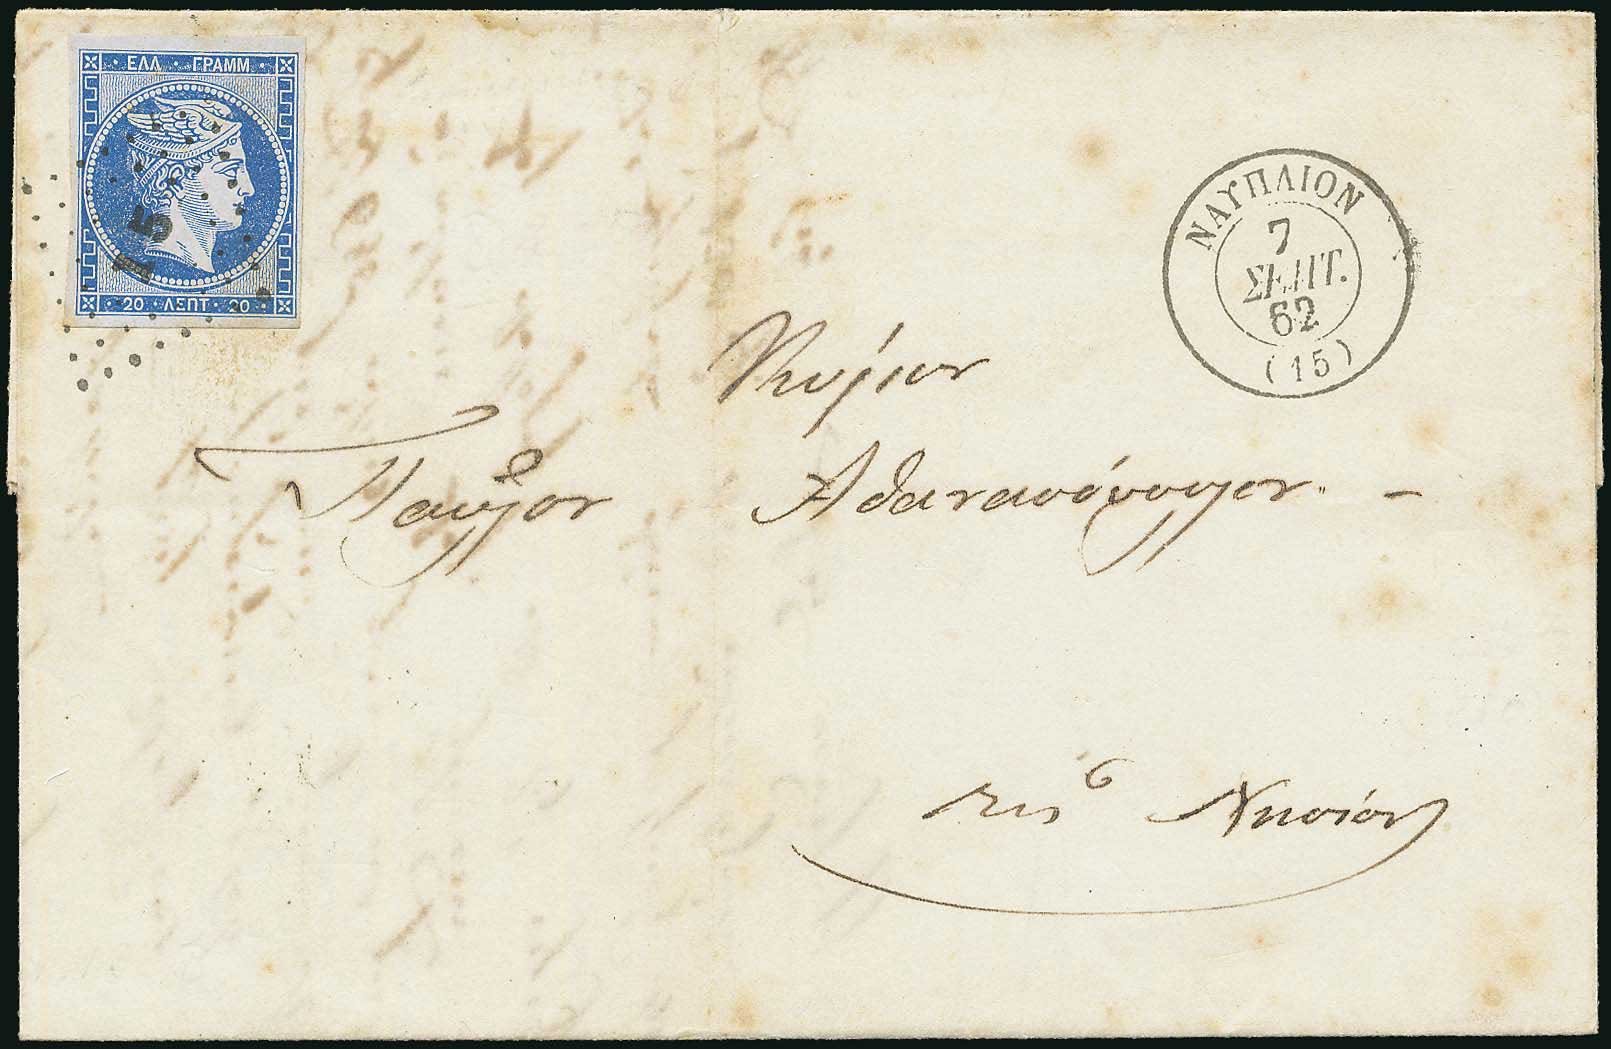 ΕΛΛ · ΓΡΑΜΜ
20 · ΛΕΠΤ · 20
15
ΝΑΥΠΛΙΟΝ
7
ΣΕΠΤ.
62
(15)
Κύριον
Παῦλον Ἀθανασόπουλον. –
εις Νησίον